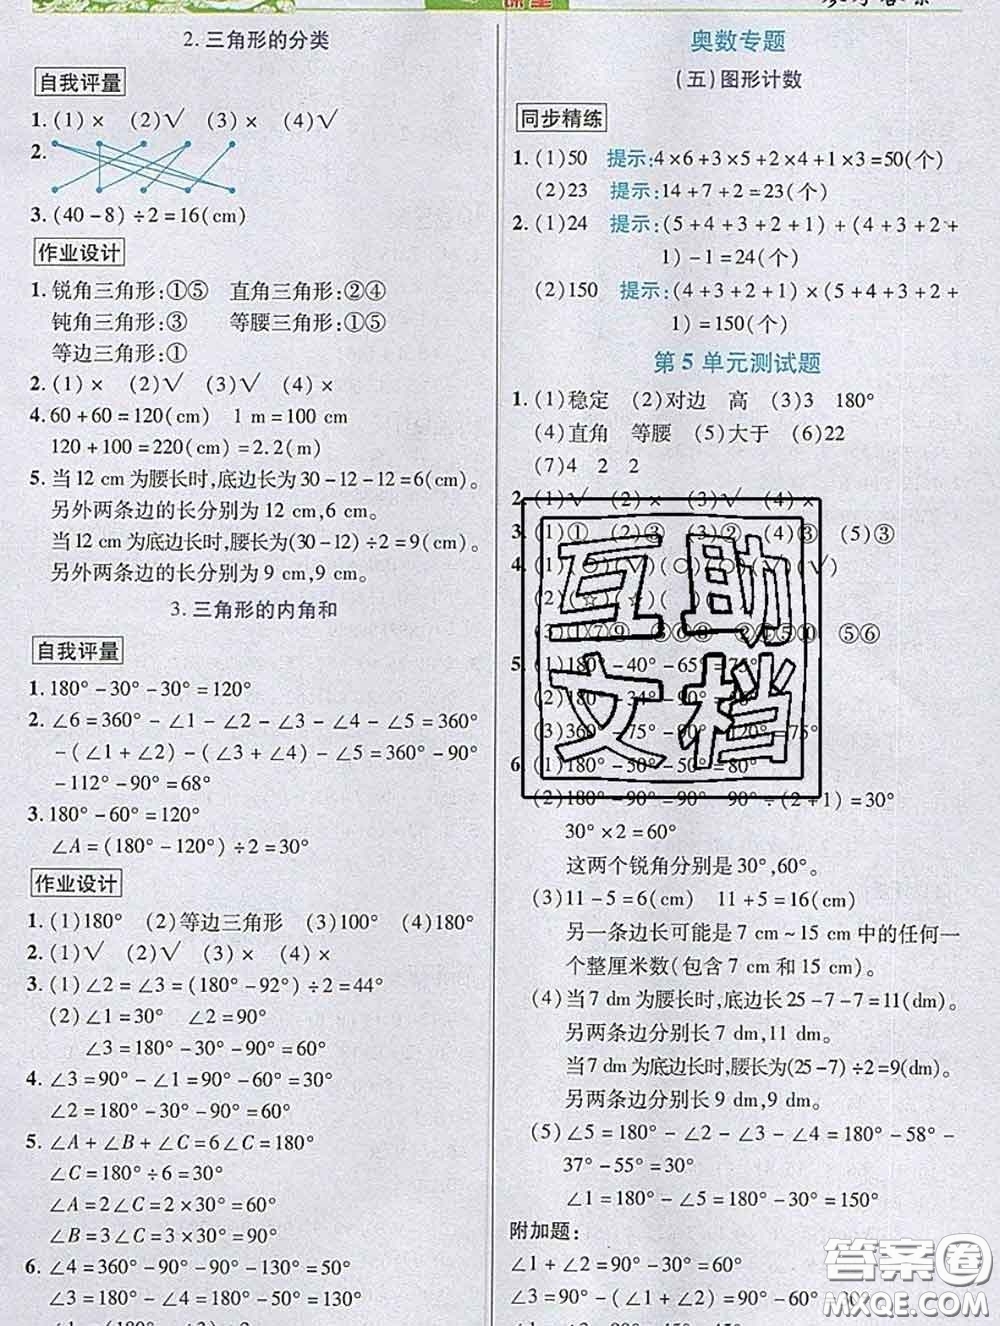 课堂
参考答案
2. 三角形的分类
自我评量
1. (1)× (2)√ (3)× (4)√
2.
3. (40-8)÷2=16(cm)
作业设计
1. 锐角三角形:①⑤ 直角三角形:②④
钝角三角形:③ 等腰三角形:①⑤
等边三角形:①
2. (1)× (2)√ (3)√ (4)×
4. 60+60=120(cm) 1 m=100 cm
120+100=220(cm)=2.2(m)
5. 当 12 cm 为腰长时,底边长为 30-12-12=6(cm)。
另外两条边的长分别为 12 cm,6 cm。
当 12 cm 为底边长时,腰长为(30-12)÷2=9(cm)。
另外两条边的长分别为 9 cm,9 cm。
3. 三角形的内角和
自我评量
1. 180°-30°-30°=120°
2. ∠6=360°-∠1-∠2-∠3-∠4-∠5=360°
-(∠1+∠2)-(∠3+∠4)-∠5=360°-90°
-112°-90°=68°
3. 180°-60°=120°
∠A=(180°-120°)÷2=30°
作业设计
1. (1)180° (2)等边三角形 (3)100° (4)180°
2. (1)√ (2)√ (3)× (4)×
3. (1)∠2=∠3=(180°-92°)÷2=44°
(2)∠1=30° ∠2=90°
∠3=180°-30°-90°=60°
4. ∠3=90°-∠1=90°-60°=30°
∠2=180°-30°-90°=60°
5. ∠A+∠B+∠C=6∠C=180°
∠C=180°÷6=30°
∠A=2∠C=2×30°=60°
∠B=3∠C=3×30°=90°
6. ∠4=360°-90°-90°-130°=50°
∠3=180°-∠4=180°-50°=130°
奥数专题
(五)图形计数
同步精练
1. (1)50 提示:4×6+3×5+2×4+1×3=50(个)
(2)23 提示:14+7+2=23(个)
2. (1)24 提示:(5+4+3+2+1)+(4+3+2+
1)-1=24(个)
(2)150 提示:(4+3+2+1)×(5+4+3+2
+1)=150(个)
第 5 单元测试题
1. (1)稳定 (2)对边 高 (3)3 180°
(4)直角 等腰 (5)大于 (6)22
(7)4 2 2
2. (1)√ (2)× (3)√ (4)×
3. (1)① (2)③ (3)② (4)③ (5)③
4.
(3)①⑦⑨ ⑤⑥
5. (1)180°-40°-65°=75°
(2)180°
(3)360°
6. (1)180°-50°-50°=80°
(2)180°-90°=90° 90°÷(2+1)=30°
30°×2=60°
这两个锐角分别是 30°,60°。
(3)11-5=6(cm) 11+5=16(cm)
另一条边长可能是 7 cm~15 cm 中的任何一
个整厘米数(包含 7 cm 和 15 cm)。
(4)当 7 dm 为腰长时,底边长 25-7-7=11(dm)。
另两条边分别长 7 dm,11 dm。
当 7 dm 为底边长时,腰长为(25-7)÷2=9(dm)。
另两条边分别长 9 dm,9 dm。
(5)∠5=180°-∠2-∠3-∠4=180°-58°-
37°-55°=30°
∠1=180°-∠5=180°-30°=150°
附加题:
∠1+∠2=90°
∠3=90°-(∠1+∠2)=90°
互助
文档
答案圈
MXQE.COM